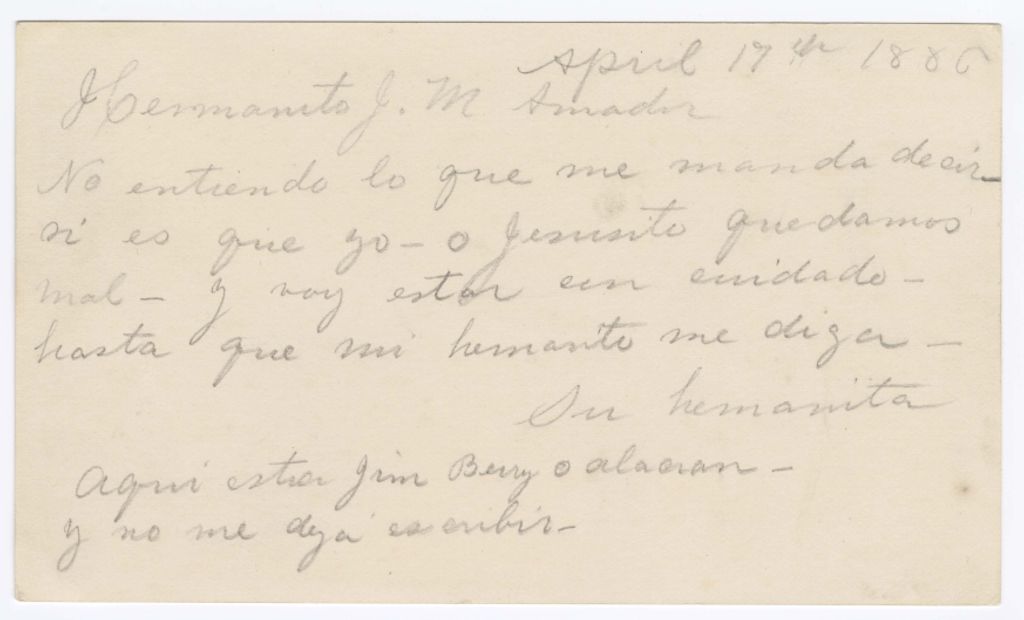 April 17th 1886
Hermanito J. M Amador
No entiendo lo que me manda decir
si es que yo - o Jesusito quedamos
mal - y voy estar con cuidado -
hasta que mi hemanito me diga -
Su hemanita
Aqui esta Jim Berry o alacran -
y no me deja escribir -